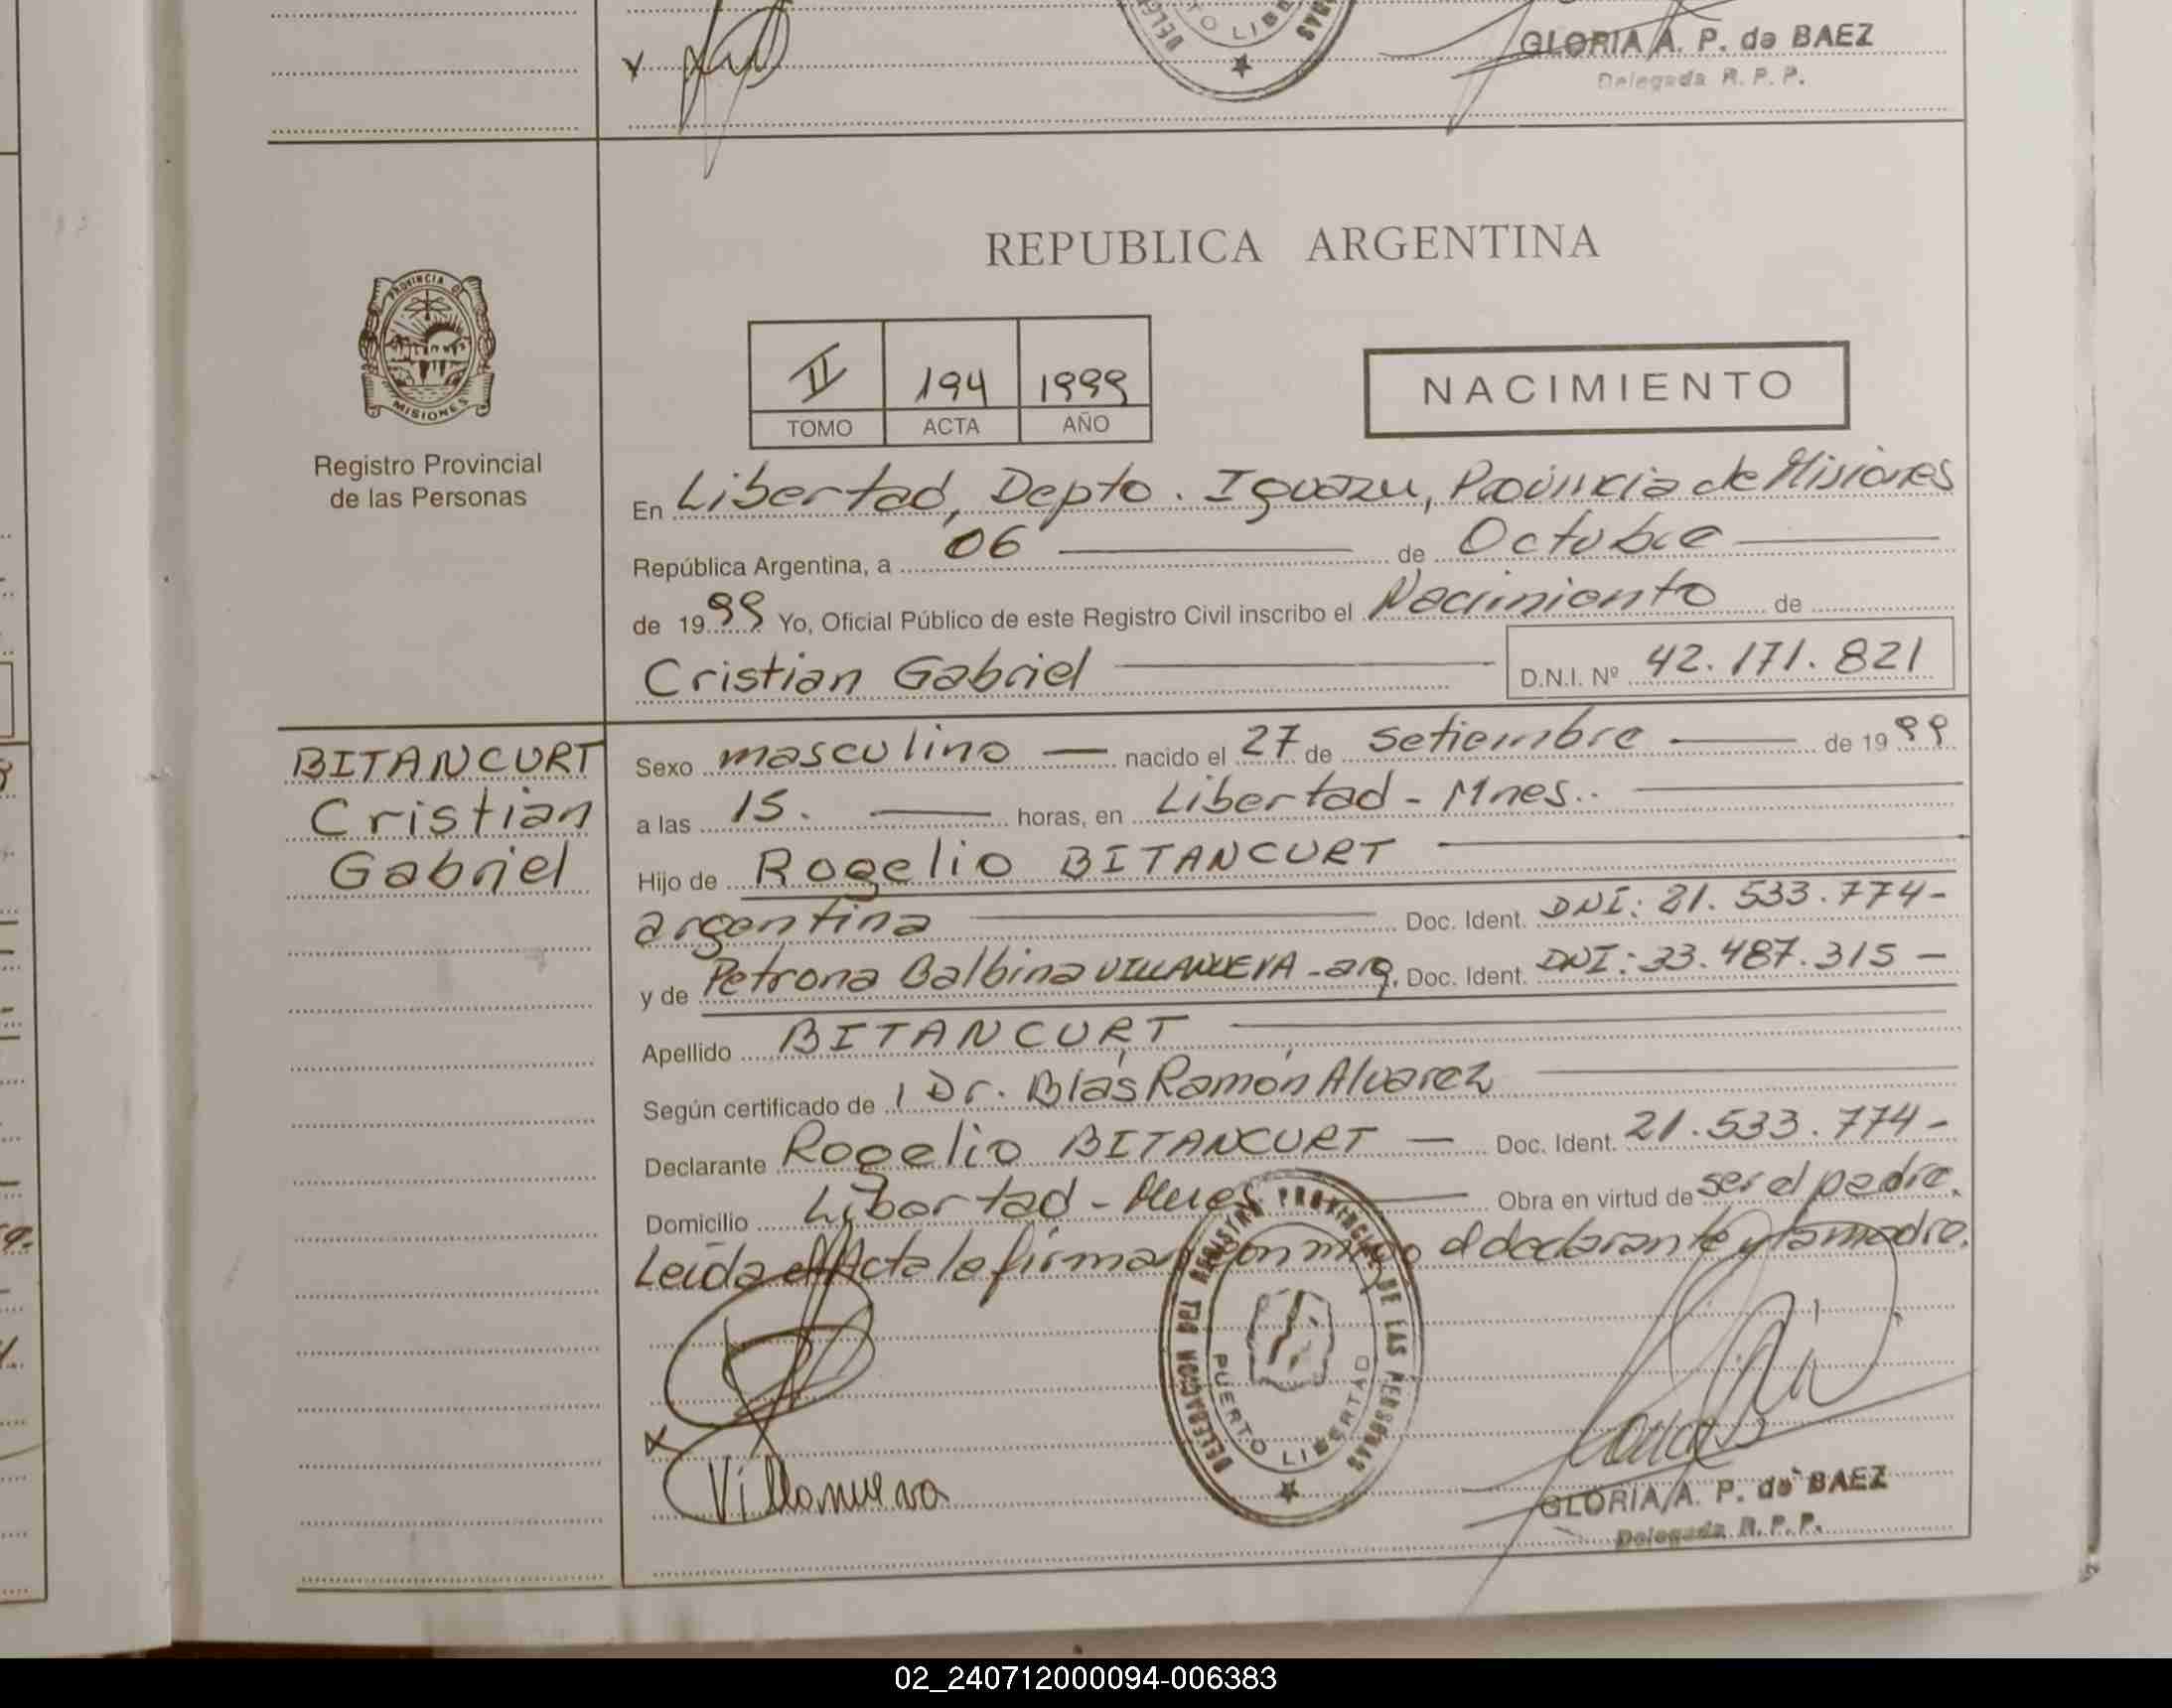 DELEG
TO LIBE
NAS
GLORIA A. P. de BAEZ
Delegada R. P. P.
PROVINCIA DE
MISIONES
Registro Provincial
de las Personas
REPUBLICA ARGENTINA
II 194 1999
TOMO ACTA AÑO
NACIMIENTO
En Libertad, Depto. Iguazu, Provincia de Misiones
República Argentina, a 06 de Octubre
de 1999 Yo, Oficial Público de este Registro Civil inscribo el Nacimiento de
Cristian Gabriel D.N.I. Nº 42.171.821
BITANCURT
Cristian
Gabriel
Sexo masculino nacido el 27 de Setiembre de 1999
a las 15. horas, en Libertad - Mnes..
Hijo de Rogelio BITANCURT
argentina Doc. Ident. DNI: 21.533.774-
y de Petrona Balbina VILLANUEVA - arg. Doc. Ident. DNI: 33.487.315 -
Apellido BITANCURT
Según certificado de Dr. Blás Ramón Alvarez
Declarante Rogelio BITANCURT - Doc. Ident. 21.533.774-
Domicilio Libertad - Mnes Obra en virtud de ser el padre.
Leída el Acta la firman conmigo el declarante y la madre.
DELEGACION DEL REGISTRO PROVINCIAL DE LAS PERSONAS
PUERTO LIBERTAD
Villanueva
GLORIA A. P. de BAEZ
Delegada R. P. P.
02_240712000094-006383